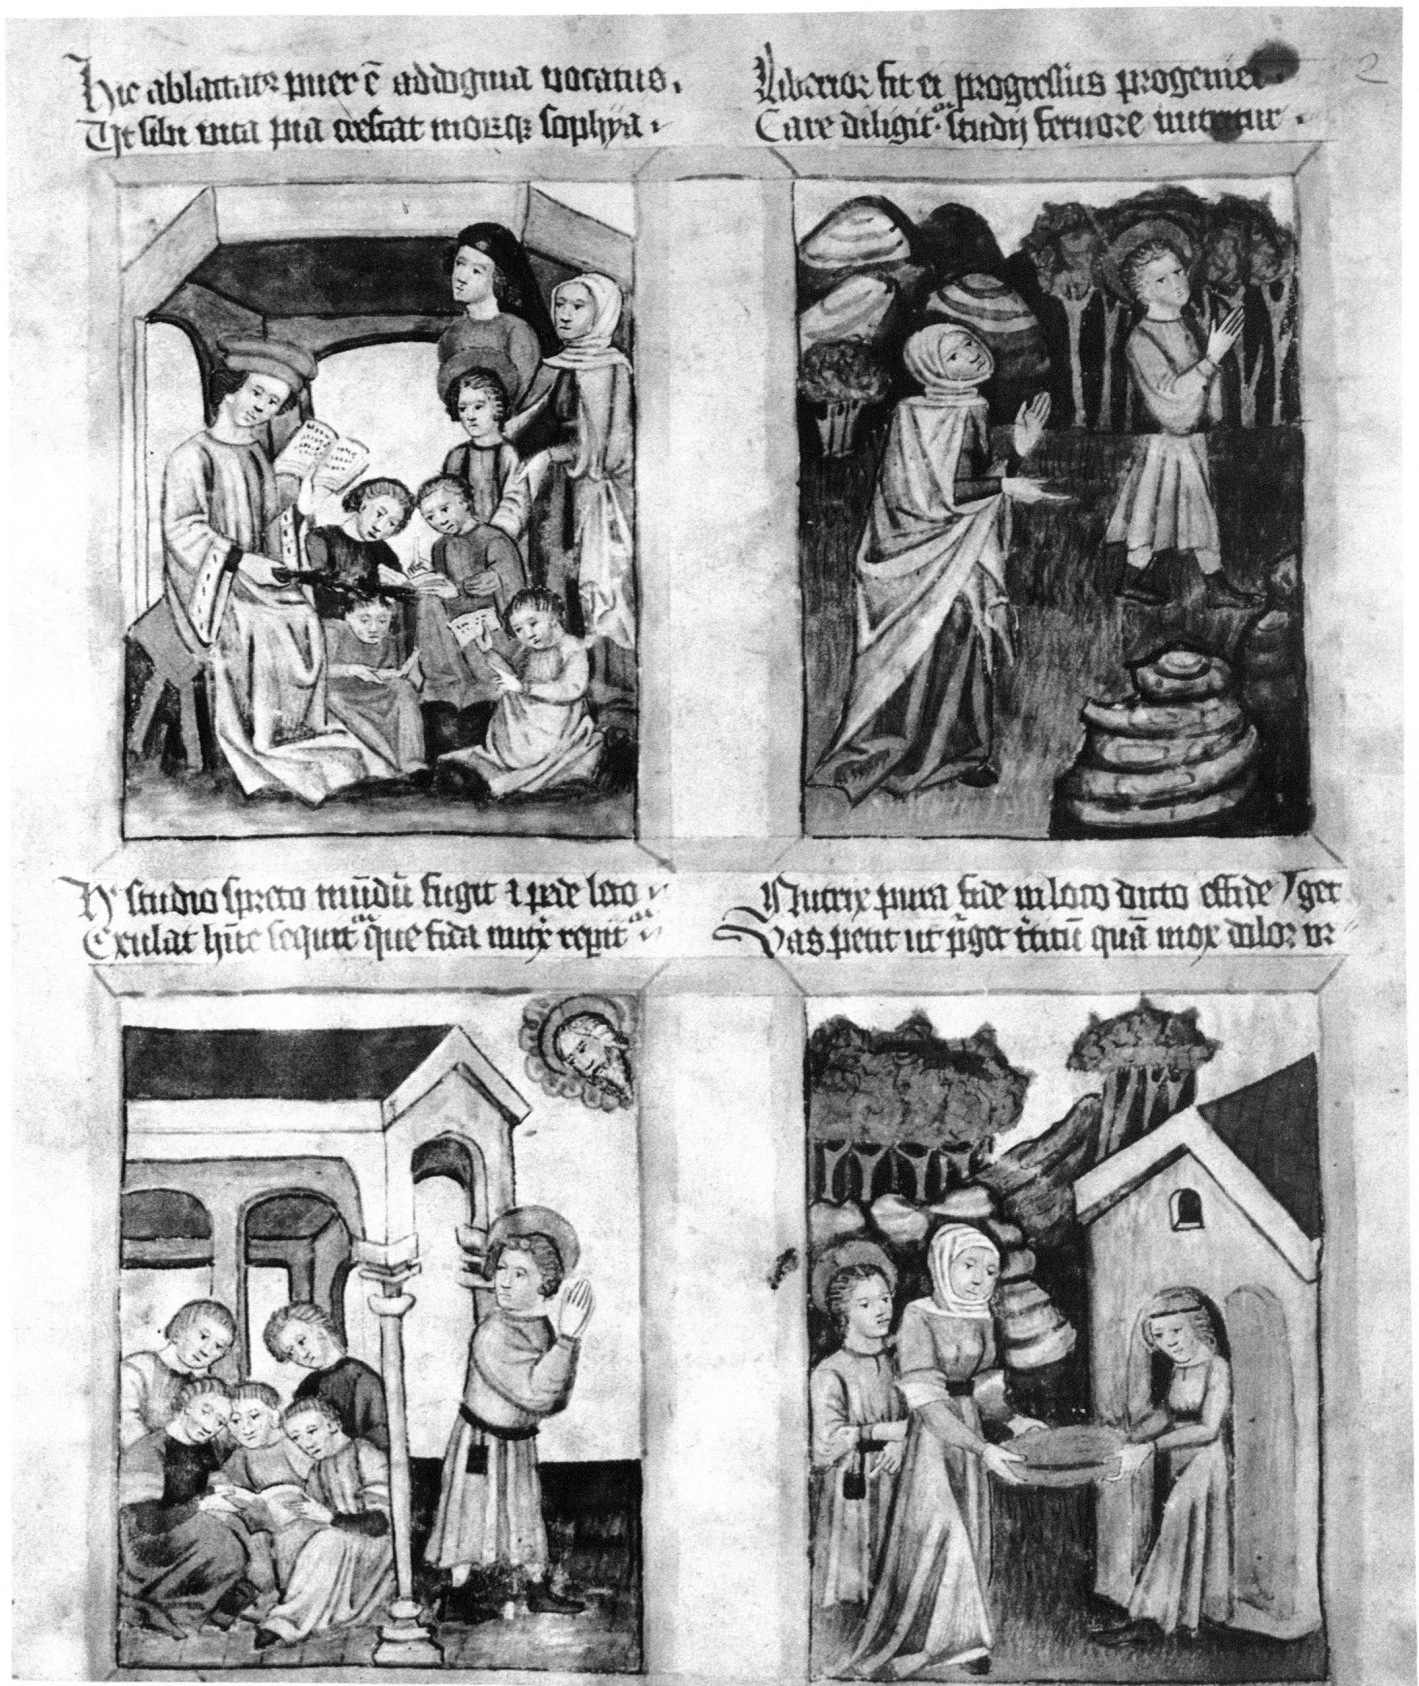 Hic ablactatr puer ē addogma vocatus.
Ut sibi vita pia crescat morꝝqꝫ sophya
2
Liberior fit ei progressus progeniei
Care diligit studij fervore nutritur
studio spreto mūdū fugit ⁊ pede leto
Exulat hūc sequit que fida nutx repit
Nutrix pura fide in loco dicto effide
Vas petit ut quā mox dolor